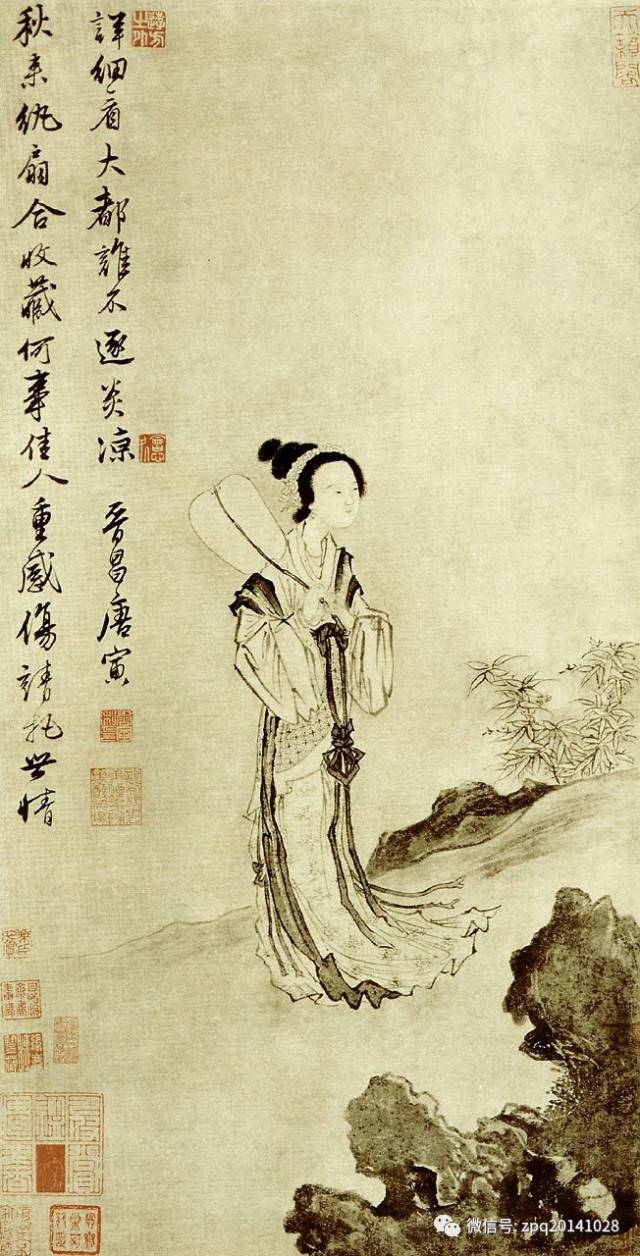 秋来紈扇合收藏何事佳人重感傷請托世情
詳細看大都誰不逐炎凉 晉昌唐寅
天籟閣
微信号: zpq20141028